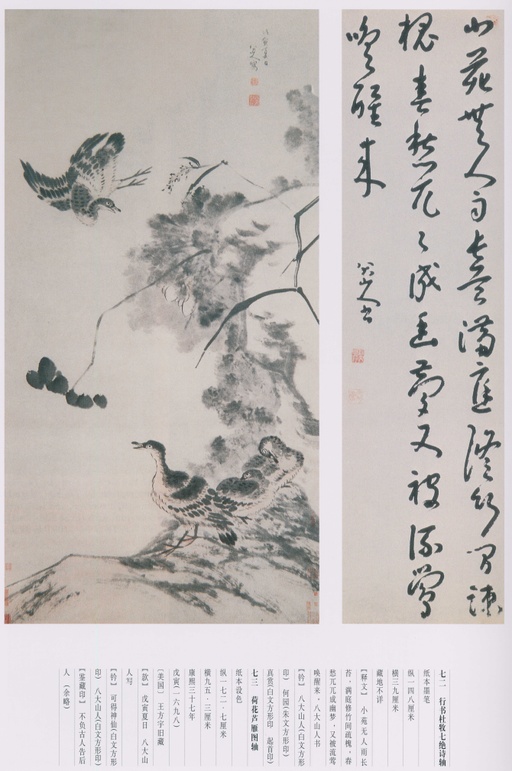 小苑無人雨長苔滿庭脩竹間疎
槐春愁兀兀成幽夢又被流鶯
喚醒来
八大山人書
戊寅夏日
八大山人寫
七二　行书杜牧七绝诗轴
纸本墨笔
纵一四八厘米
横三九厘米
藏地不详
【释文】　小苑无人雨长
苔，满庭修竹间疏槐。春
愁兀兀成幽梦，又被流莺
唤醒来。八大山人书
【钤】　八大山人(白文方形
印)　何园(朱文方形印)
真赏(白文方形印　起首印)
七三　荷花芦雁图轴
纸本设色
纵一七二·七厘米
横九五·三厘米
康熙三十七年
戊寅(一六九八)
[美国]　王方宇旧藏
【款】　戊寅夏日　八大山
人写
【钤】　可得神仙(白文方形
印)　八大山人(白文方形印)
【鉴藏印】　不负古人告后
人 (余略)